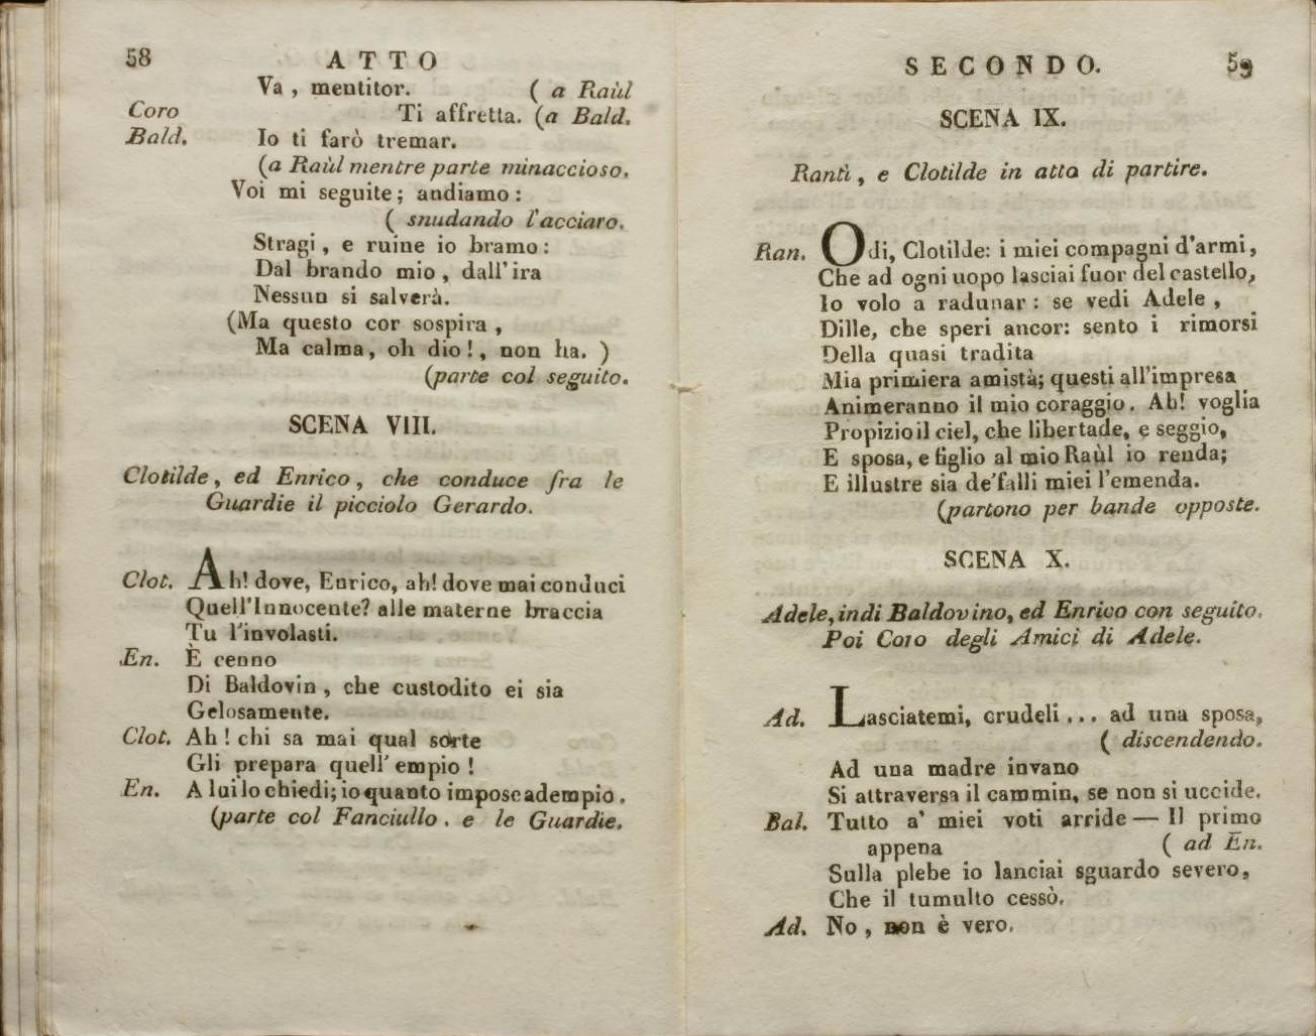 58
ATTO
Va, mentitor. (a Raùl
Coro Ti affretta. (a Bald.
Bald. Io ti farò tremar.
(a Raùl mentre parte minaccioso.
Voi mi seguite; andiamo:
(snudando l'acciaro.
Stragi, e ruine io bramo:
Dal brando mio, dall'ira
Nessun si salverà.
(Ma questo cor sospira,
Ma calma, oh dio!, non ha.)
(parte col seguito.
SCENA VIII.
Clotilde, ed Enrico, che conduce fra le
Guardie il picciolo Gerardo.
Clot. Ah! dove, Enrico, ah! dove mai conduci
Quell'Innocente? alle materne braccia
Tu l'involasti.
En. È cenno
Di Baldovin, che custodito ei sia
Gelosamente.
Clot. Ah! chi sa mai qual sorte
Gli prepara quell'empio!
En. A lui lo chiedi; io quanto impose adempio.
(parte col Fanciullo. e le Guardie.
SECONDO.
59
SCENA IX.
Rantì, e Clotilde in atto di partire.
Ran. Odi, Clotilde: i miei compagni d'armi,
Che ad ogni uopo lasciai fuor del castello,
Io volo a radunar: se vedi Adele,
Dille, che speri ancor: sento i rimorsi
Della quasi tradita
Mia primiera amistà; questi all'impresa
Animeranno il mio coraggio. Ah! voglia
Propizio il ciel, che libertade, e seggio,
E sposa, e figlio al mio Raùl io renda;
E illustre sia de' falli miei l'emenda.
(partono per bande opposte.
SCENA X.
Adele, indi Baldovino, ed Enrico con seguito.
Poi Coro degli Amici di Adele.
Ad. Lasciatemi, crudeli... ad una sposa,
(discendendo.
Ad una madre invano
Si attraversa il cammin, se non si uccide.
Bal. Tutto a' miei voti arride — Il primo
appena (ad En.
Sulla plebe io lanciai sguardo severo,
Che il tumulto cessò.
Ad. No, non è vero.